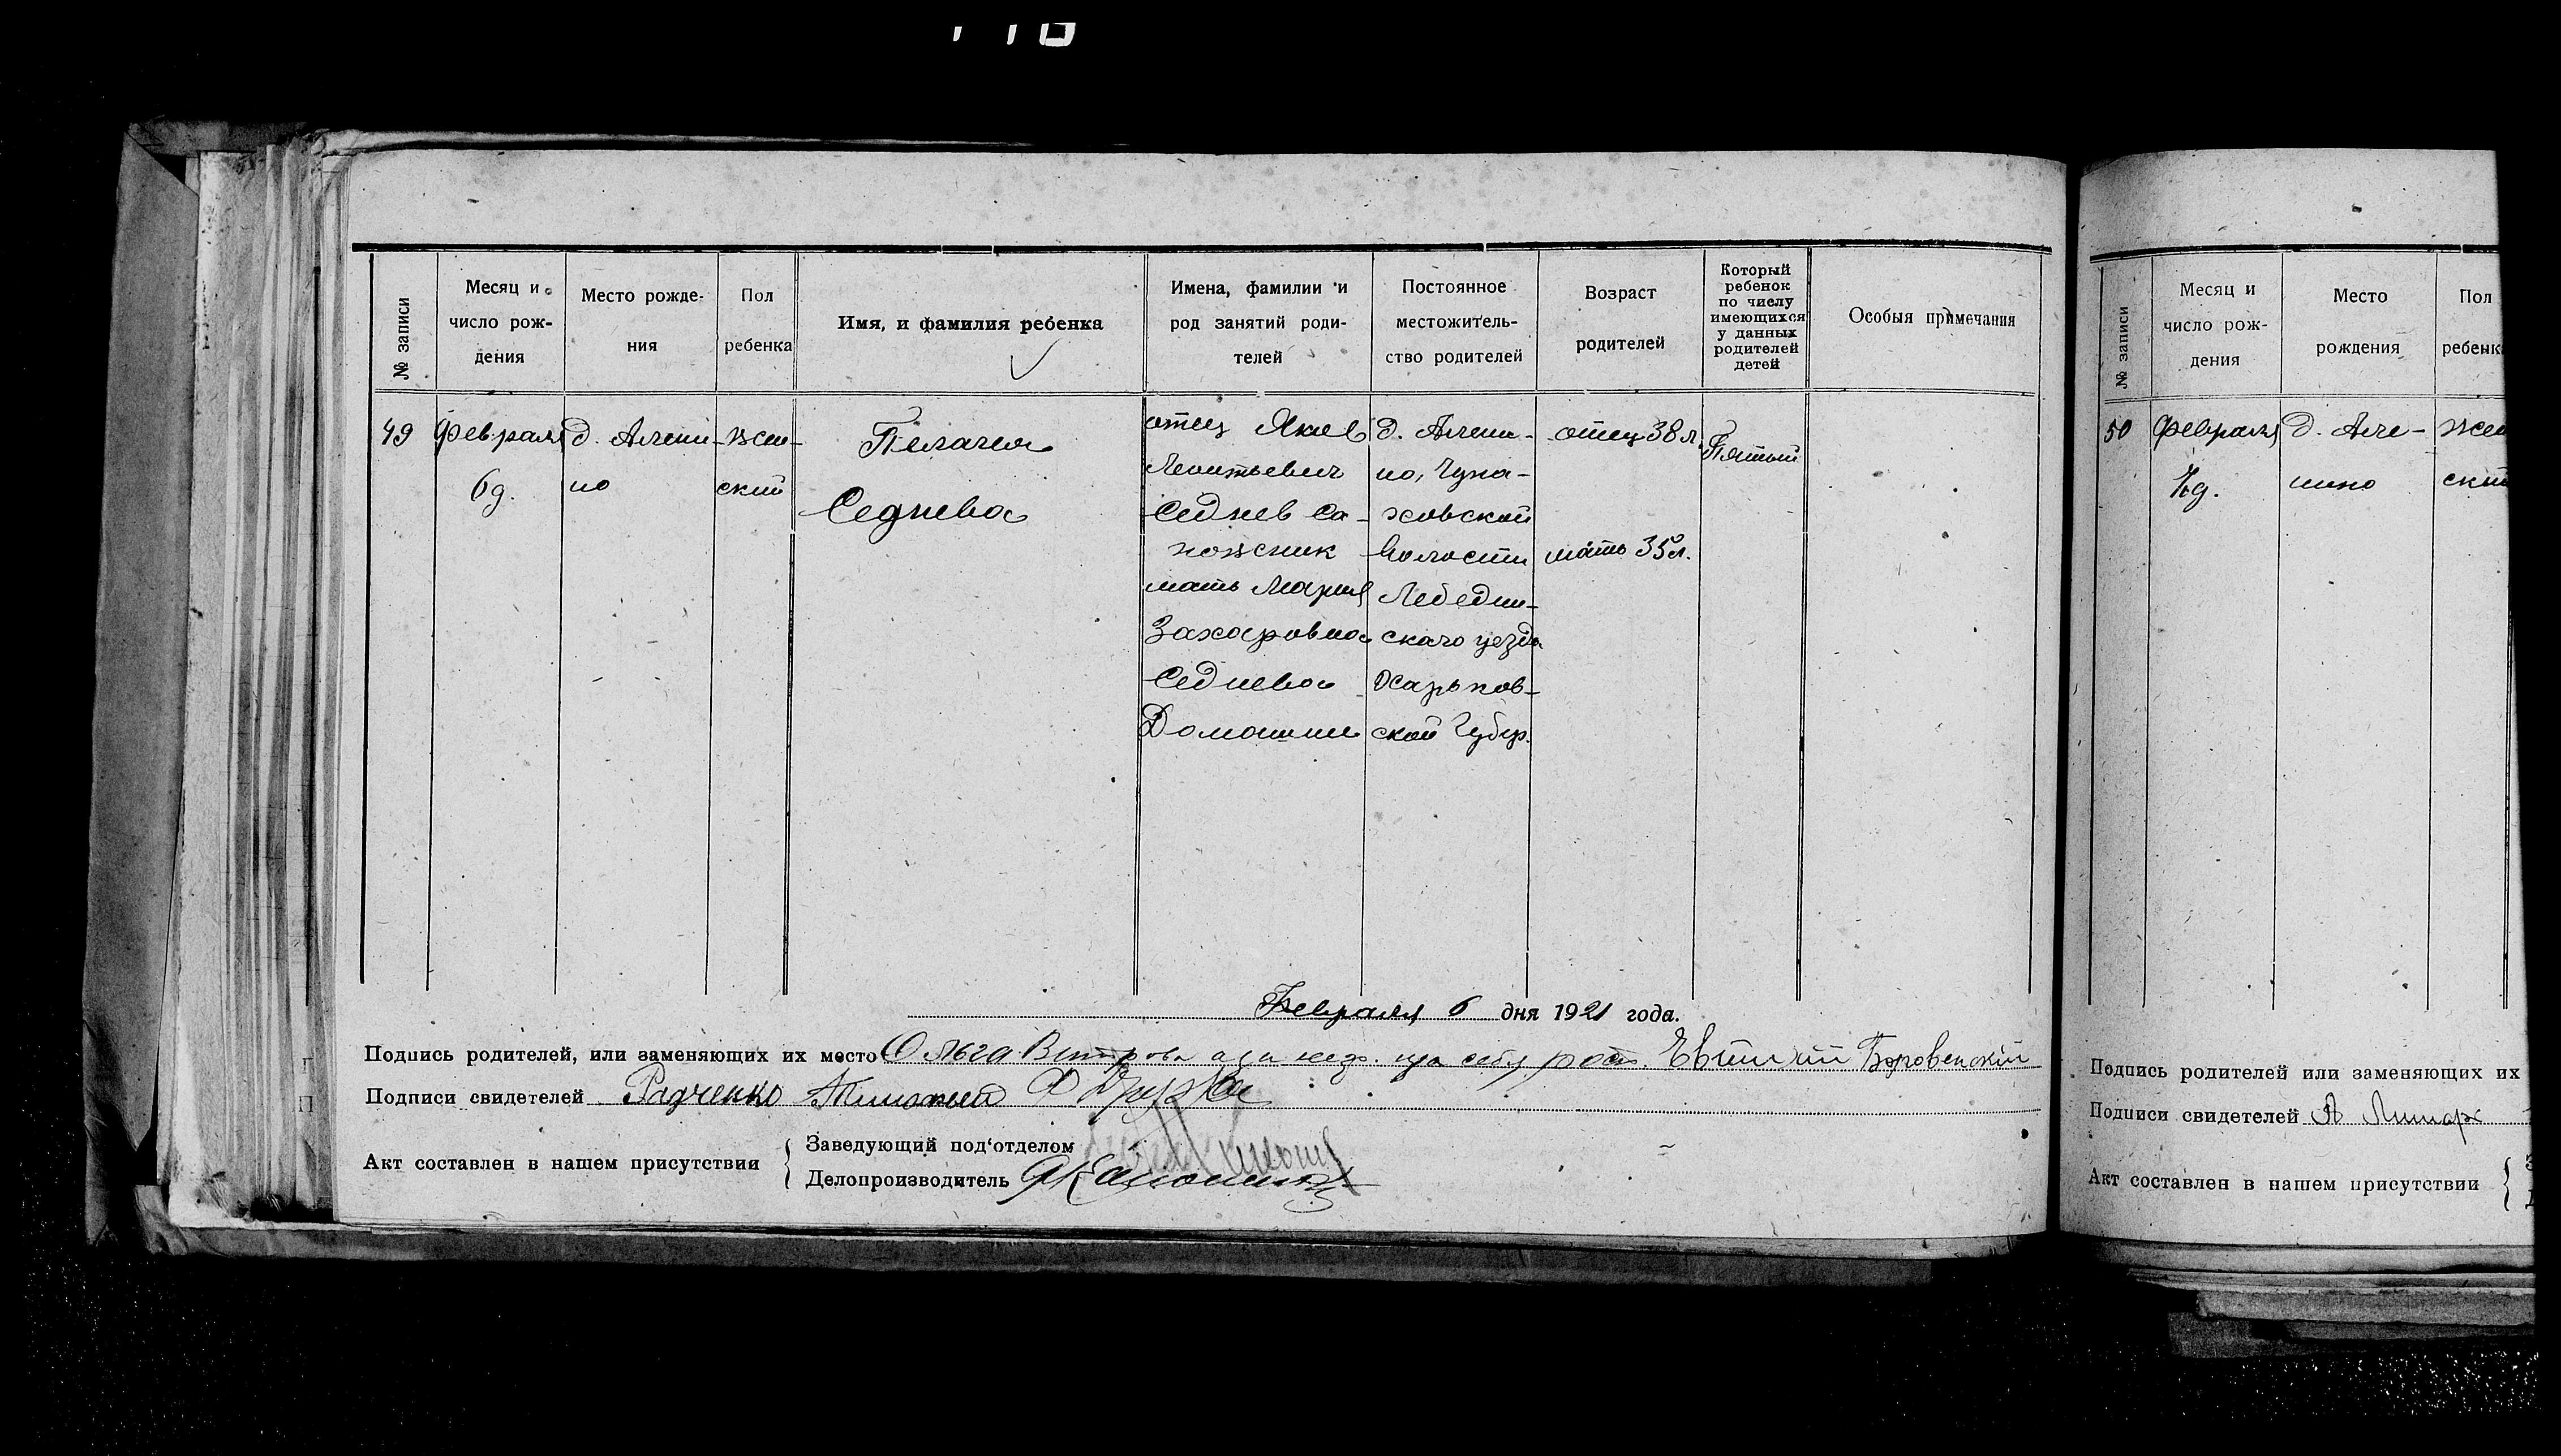 № записи
Месяц и число рождения
Место рожде-ния
Пол ребенка
Имя, и фамилия ребенка
Имена, фамилии и род занятий роди-телей
Постоянное местожитель-ство родителей
Возраст родителей
Который ребенок по числу имеющихся у данных родителей детей
Особыя примечания
49
Февраля
6 д.
д. Алени-
но
жен-
ский
Пелагея
Седнева
отец Яков
Леонтьевич
Седнев Са-
пожник
мать Мария
Захаровна
Седнева
Домашние
д. Алени-
но, Чупа-
ховской
волости
Лебедин-
скаго уезда
Харьков-
ской Губер.
отец 38 л.
мать 35 л.
Пятый
Февраля 6 дня 1921 года.
Подпись родителей, или заменяющих их место Ольга
Подписи свидетелей Радченко
Акт составлен в нашем присутствии
Заведующий под'отделом
Делопроизводитель
№ записи
Месяц и число рож-дения
Место рождения
Пол ребенк
50
Февраля
д. Але-
нино
жен
ский
Подпись родителей или заменяющих их
Подписи свидетелей
Акт составлен в нашем присутствии